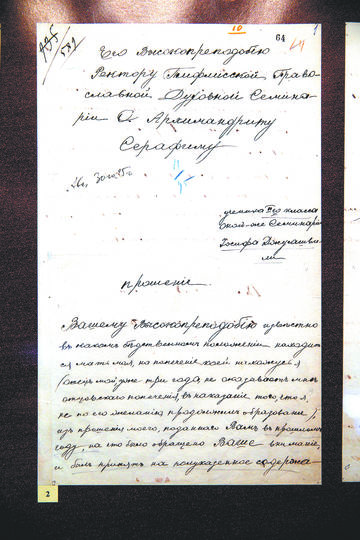 10
64
Его Высокопреподобію
Ректору Тифлисской Право-
славной Духовной Семина-
ріи О. Архимандриту
Серафиму
ученика II го класса
оной-же Семинаріи
Іосифа Джугашви-
ли
прошеніе
Вашему Высокопреподобію известно
въ какомъ бедственномъ положеніи находит-
ся мать моя, на попеченіе коей нахожусь я
(отецъ мой уже три года не оказываетъ мне
отцовскаго попеченія, въ наказаніе того, что я
не по его желанію продолжаю образованіе),
изъ прошенія моего, поданнаго Вамъ въ прошломъ
году, на что было обращено Ваше вниманіе,
и былъ принятъ на полуказенное содержа-
2